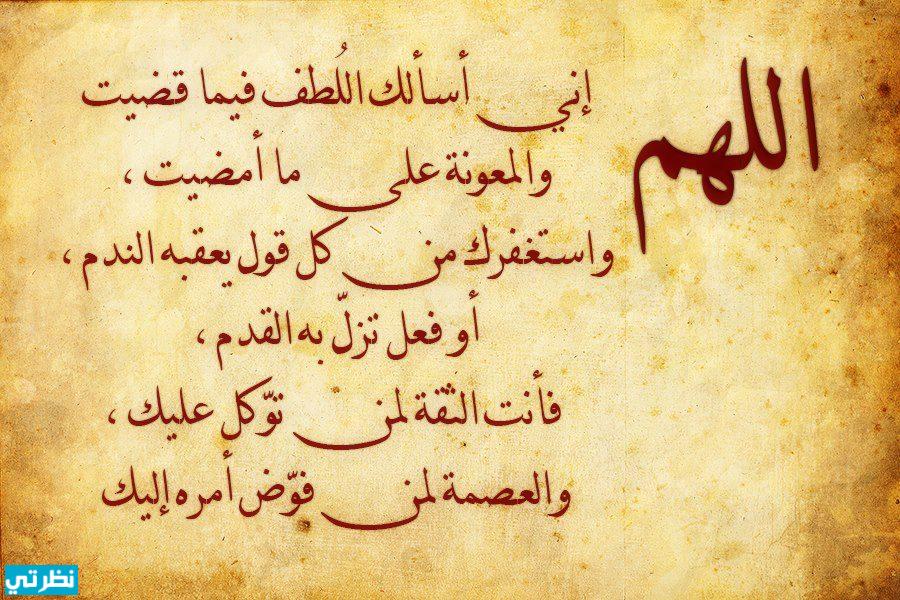 اللهم
إني أسألك اللُطف فيما قضيت
والمعونة على ما أمضيت ،
واستغفرك من كل قول يعقبه الندم ،
أو فعل تزلّ به القدم ،
فأنت الثقة لمن توّكل عليك ،
والعصمة لمن فوّض أمره إليك
نظرتي